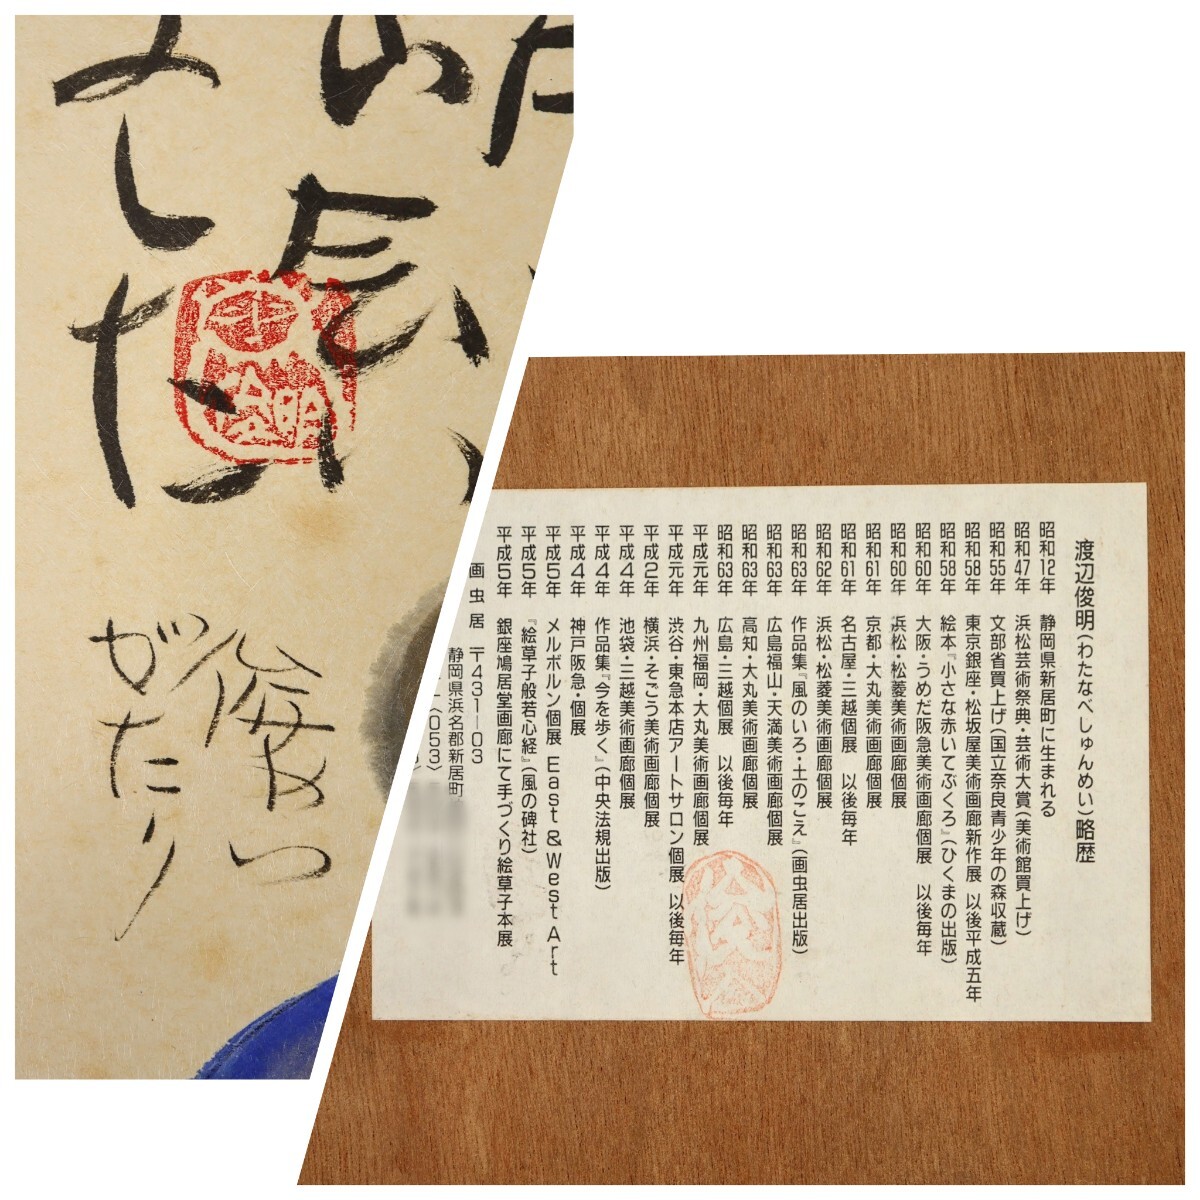 長い
した
俊めい
がたり
渡辺俊明(わたなべしゅんめい)略歴
昭和12年 静岡県新居町に生まれる
昭和47年 浜松芸術祭典・芸術大賞(美術館買上げ)
昭和55年 文部省買上げ(国立奈良青少年の森収蔵)
昭和58年 東京銀座・松坂屋美術画廊新作展 以後平成五年
昭和58年 絵本『小さな赤いてぶくろ』(ひくまの出版)
昭和60年 大阪・うめだ阪急美術画廊個展 以後毎年
昭和60年 浜松・松菱美術画廊個展
昭和61年 京都・大丸美術画廊個展
昭和61年 名古屋・三越個展 以後毎年
昭和62年 浜松・松菱美術画廊個展
昭和63年 作品集『風のいろ・土のこえ』(画虫居出版)
昭和63年 広島福山・天満美術画廊個展
昭和63年 高知・大丸美術画廊個展
昭和63年 広島・三越個展 以後毎年
平成元年 九州福岡・大丸美術画廊個展
平成元年 渋谷・東急本店アートサロン個展 以後毎年
平成2年 横浜・そごう美術画廊個展
平成4年 池袋・三越美術画廊個展
平成4年 作品集『今を歩く』(中央法規出版)
平成4年 神戸阪急・個展
平成5年 メルボルン個展 East & West Art
平成5年 『絵草子般若心経』(風の碑社)
平成5年 銀座鳩居堂画廊にて手づくり絵草子本展
画虫居 〒431-03
静岡県浜名郡新居町
(053)